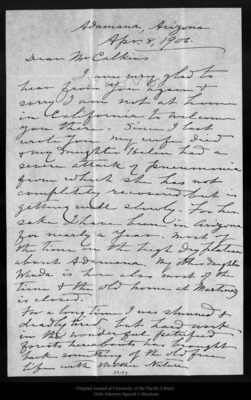 Adamana, Arizona
Apr. 8, 1906.
Dear Mr Calkins
I am very glad to
hear from you again &
sorry I am not at home
in California to welcome
you there. Since I last
wrote you, my wife died
& my daughter Helen had
severe attack of pneumonia
from which she has not
completely recovered but is
getting well slowly. For her
sake I have been in Arizona
for nearly a year, most of
the time on the high dry plateau
about Adamana. My other daughter
Wanda is here also most of the
time & the old home at Martinez
is closed.
For a long time I was stunned &
deadly tired, but hard work
in the petrified
forests hereabouts has brought
back something of the old free
life with Mother Nature
Original located at University of the Pacific Library
Holt-Atherton Special Collections